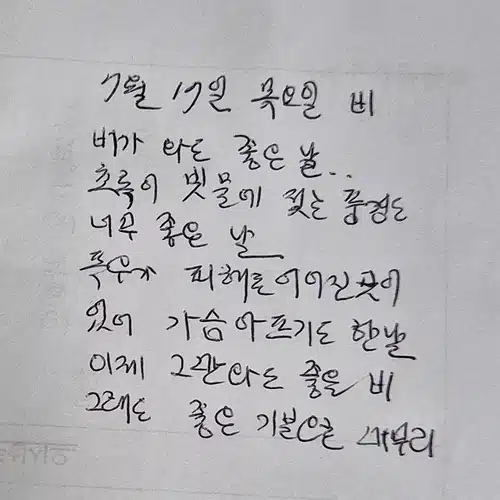 7월 17일 목요일 비
비가 와도 좋은 날..
초록이 빗물에 젖는 풍경도
너무 좋은 날
폭우가 피해로 이어진 곳이
있어 가슴 아프기도 한날
이제 그만 와도 좋을 비
그래도 좋은 기분으로 마무리